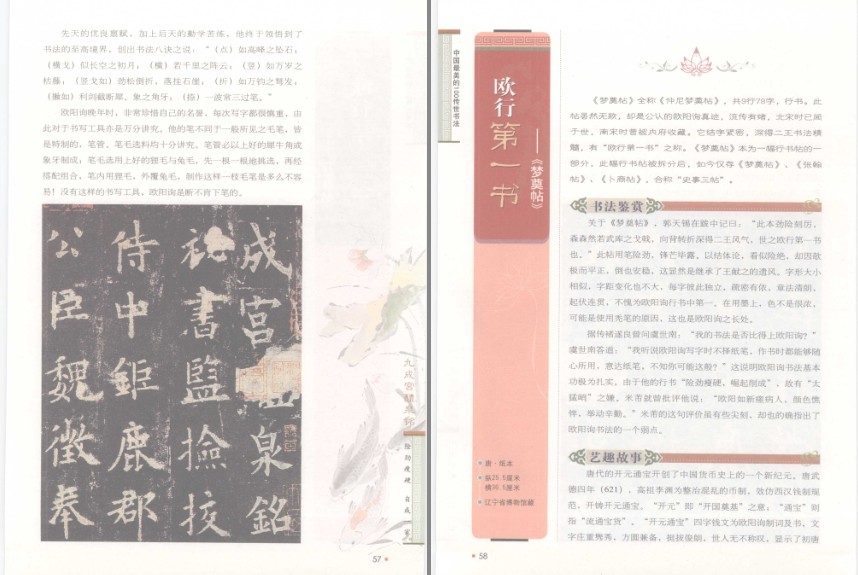 先天的优良禀赋，加上后天的勤学苦练，他终于领悟到了
书法的至高境界，创出书法八诀之说：“（点）如高峰之坠石；
（横戈）似长空之初月；（横）若千里之阵云；（竖）如万岁之
枯藤；（竖戈如）劲松倒折，落挂石崖；（折）如万钧之弩发；
（撇如）利剑截断犀、象之角牙；（捺）一波常三过笔。”
欧阳询晚年时，非常珍惜自己的名誉，每次写字都很慎重，由
此对于书写工具亦是万分讲究。他的笔不同于一般所见之毛笔，皆
是特制的，笔管、笔毛选料均十分讲究。笔管必以上好的犀牛角或
象牙制成，笔毛选用上好的狸毛与兔毛，先一根一根地挑选，再经
搭配组合，笔内用狸毛，外覆兔毛。制作这样一枝毛笔是多么不容
易！没有这样的书写工具，欧阳询是断不肯下笔的。
成宫泉銘
秘書監撿挍
侍中鉅鹿郡
公臣魏徵奉
九成宫醴泉铭
57
中国最美的100传世书法
欧行
第一书
——《梦奠帖》
唐·纸本
纵25.5厘米
横30.5厘米
辽宁省博物馆藏
《梦奠帖》全称《仲尼梦奠帖》，共9行78字，行书。此
帖虽然无款，却是公认的欧阳询真迹，流传有绪，北宋时已闻
于世，南宋时曾被内府收藏。它结字紧密，深得二王书法精
髓，有“欧行第一书”之称。《梦奠帖》本为一幅行书帖的一
部分，此幅行书帖被拆分后，如今仅存《梦奠帖》、《张翰
帖》、《卜商帖》，合称“史事三帖”。
书法鉴赏
关于《梦奠帖》，郭天锡在跋中记曰：“此本劲险刻厉，
森森然若武库之戈戟，向背转折深得二王风气，世之欧行第一书
也。”此帖用笔险劲，锋芒毕露，以结体论，看似险绝，却因欹
极而平正，倒也安稳，这显然是继承了王献之的遗风，字形大小
相似，字距变化也不大，每字彼此独立，疏密有依，章法清朗，
起伏连贯，不愧为欧阳询行书中第一。在用墨上，色不是很浓，
可能是使用秃笔的原因，这也是欧阳询之长处。
据传褚遂良曾问虞世南：“我的书法是否比得上欧阳询？”
虞世南答道：“我听说欧阳询写字时不择纸笔，作书时都能够随
心所用，意达纸笔，不知你可能这般？”这说明欧阳询书法基本
功极为扎实。由于他的行书“险劲瘦硬，崛起削成”，故有“太
猛峭”之嫌，米芾就曾批评他说：“欧阳如新瘥病人，颜色憔
悴，举动辛勤。”米芾的这句评价虽有些尖刻，却也的确指出了
欧阳询书法的一个弱点。
艺趣故事
唐代的开元通宝开创了中国货币史上的一个新纪元。唐武
德四年（621），高祖李渊为整治混乱的币制，效仿西汉钱制规
范，开铸开元通宝。“开元”即“开国奠基”之意；“通宝”则
指“流通宝货”。“开元通宝”四字钱文为欧阳询制词及书，文
字庄重隽秀，方圆兼备，挺拔俊朗，世人无不称叹，显示了初唐
58